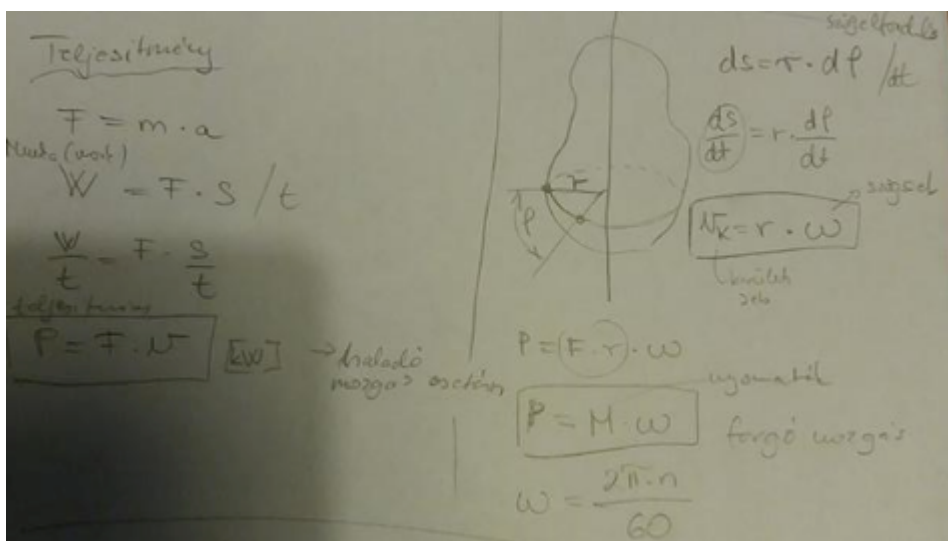 Teljesítmény
F = m · a
Munka (work)
W = F · s / t
W/t = F · s/t
teljesítmény
P = F · v [kW] → haladó
mozgás esetén
szögelfordulás
ds = r · dφ /dt
ds/dt = r · dφ/dt
r
φ
szögseb
v_K = r · ω
kerületi
seb
P = (F · r) · ω
nyomaték
P = M · ω
forgó mozgás
ω = 2π·n/60